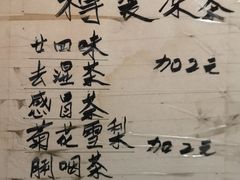 樽裝凉茶
廿四味
去湿茶 加2元
感冒茶
菊花雪梨 加2元
胭咽茶